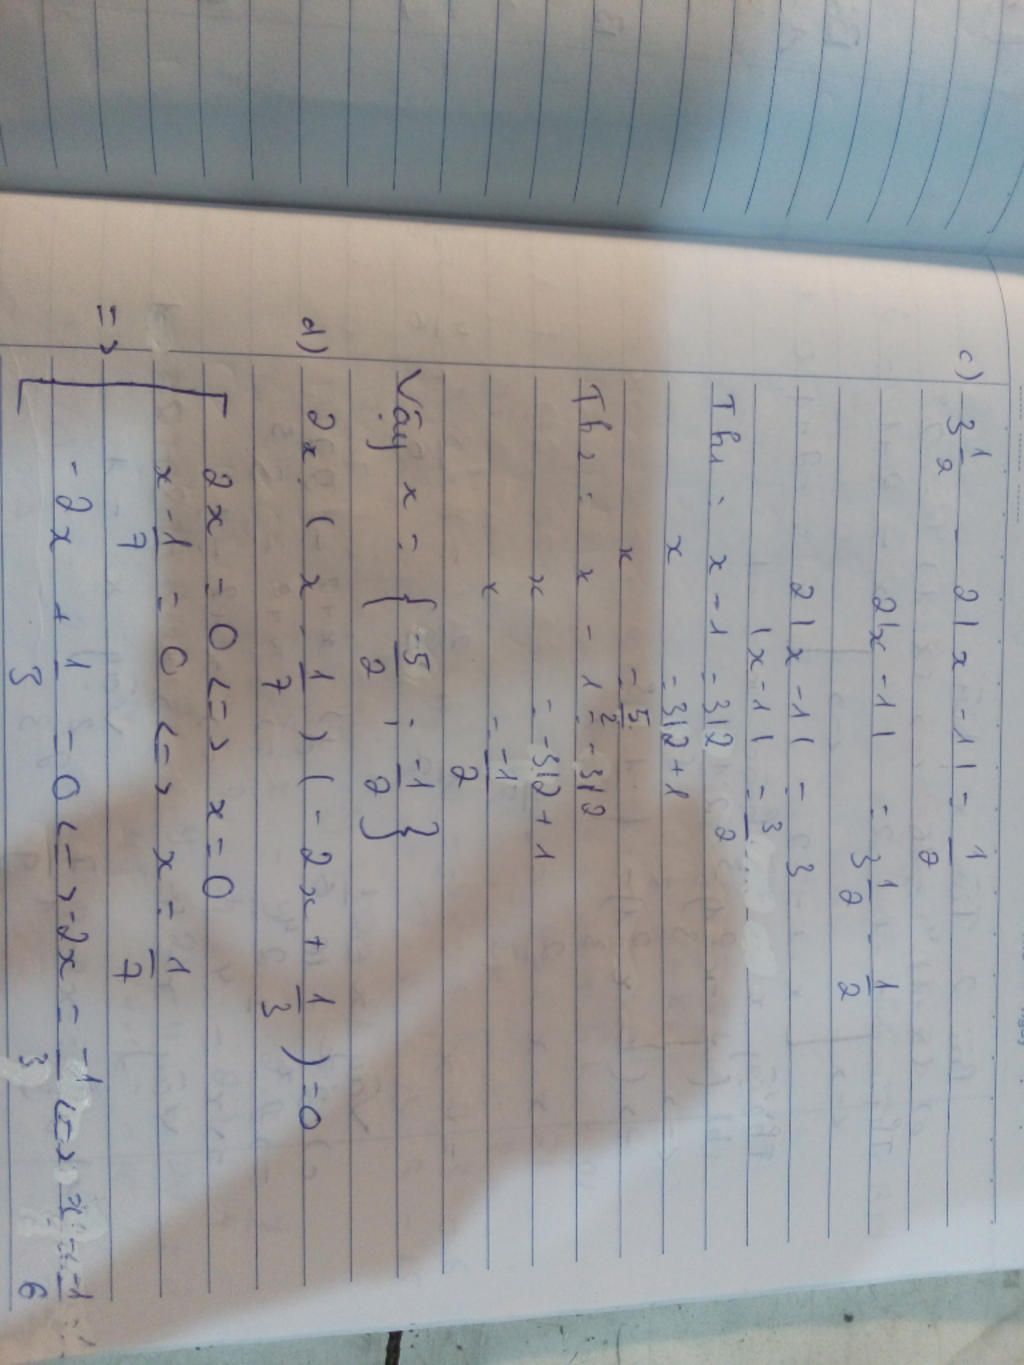 c) 3 1/2 - 2|x-1| = 1/2
2|x-1| = 3 1/2 - 1/2
2|x-1| = 3
|x-1| = 3/2
Th1: x-1 = 3/2
x = 3/2+1
x = 5/2
Th2: x - 1 = -3/2
x = -3/2+1
x = -1/2
Vậy x = { -5/2 ; -1/2 }
d) 2x (x - 1/7) (-2x + 1/3) = 0
2x = 0 <=> x = 0
=> x - 1/7 = 0 <=> x = 1/7
-2x + 1/3 = 0 <=> -2x = -1/3 <=> x = -1/6